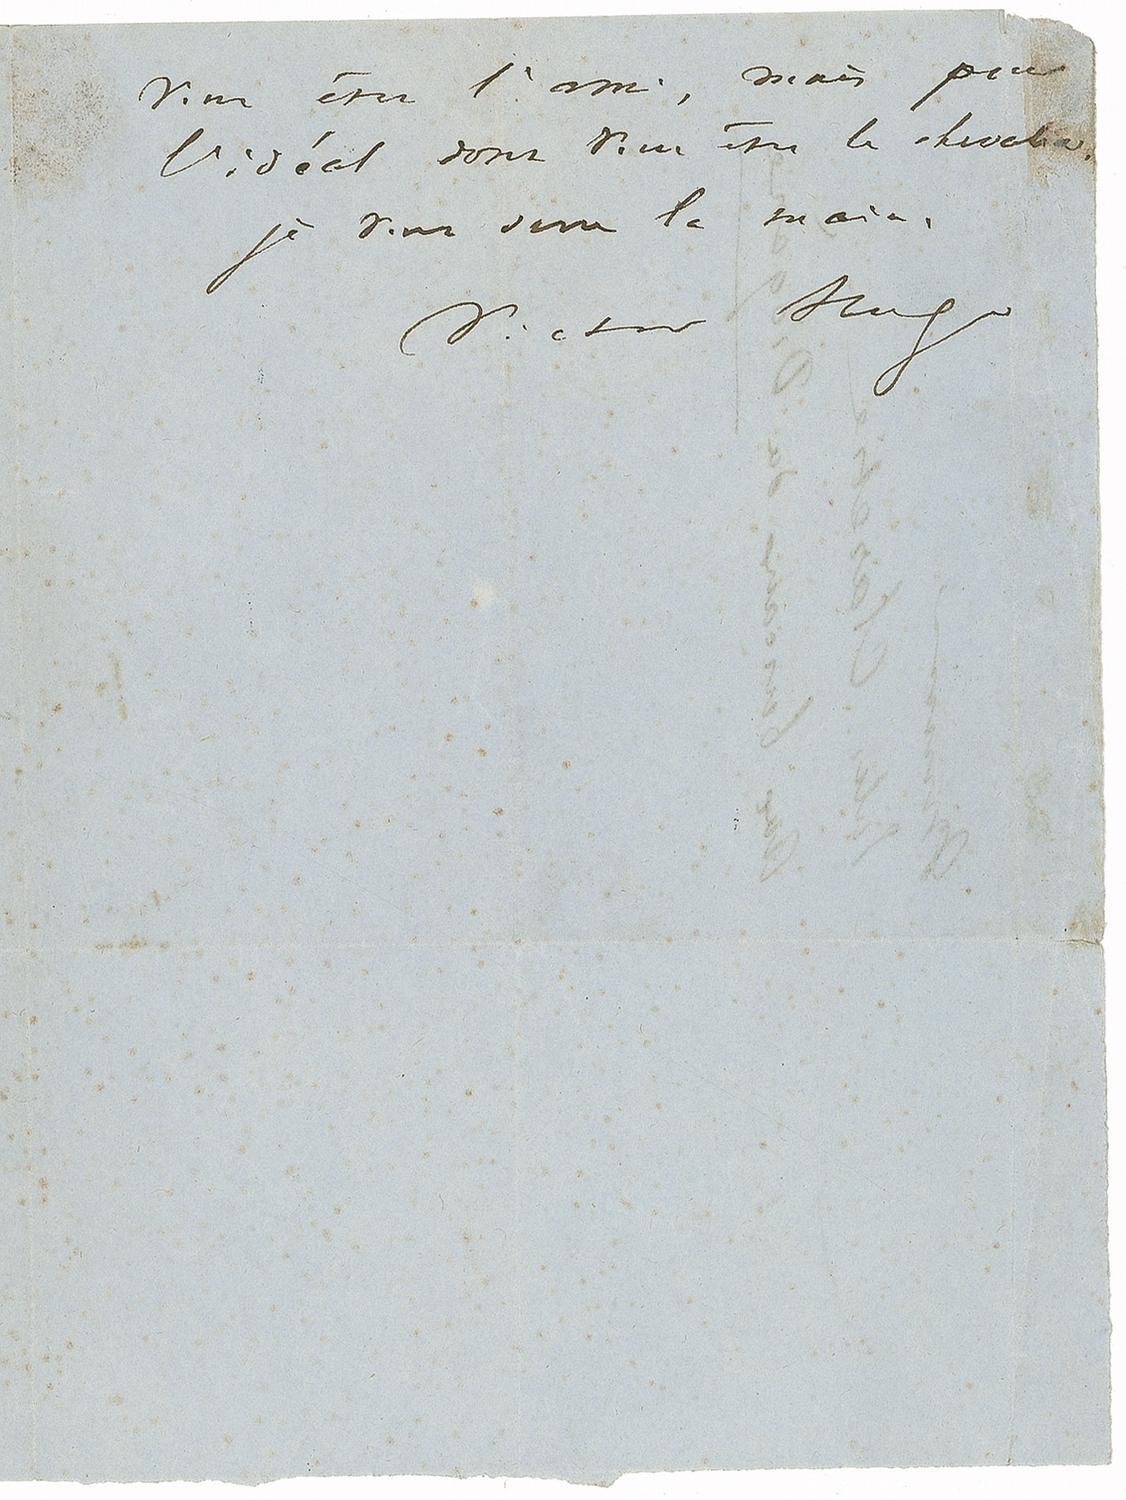 vous êtes l'ami, mais pour
l'idéal dont vous êtes le chevalier.
je vous serre la main.
Victor Hugo